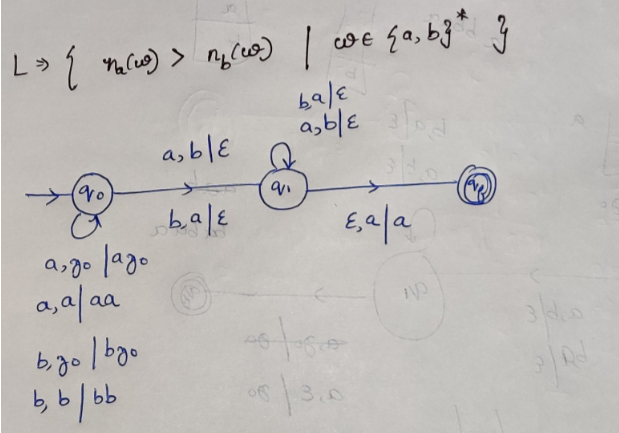 L ⇒ { nₐ(ω) > n_b(ω) | ω ∈ {a, b}* }
b,a|ε
a,b|ε
a, b|ε
q₀
q₁
q_f
b,a|ε
ε,a|a
a,z₀|az₀
a,a|aa
b,z₀|bz₀
b,b|bb